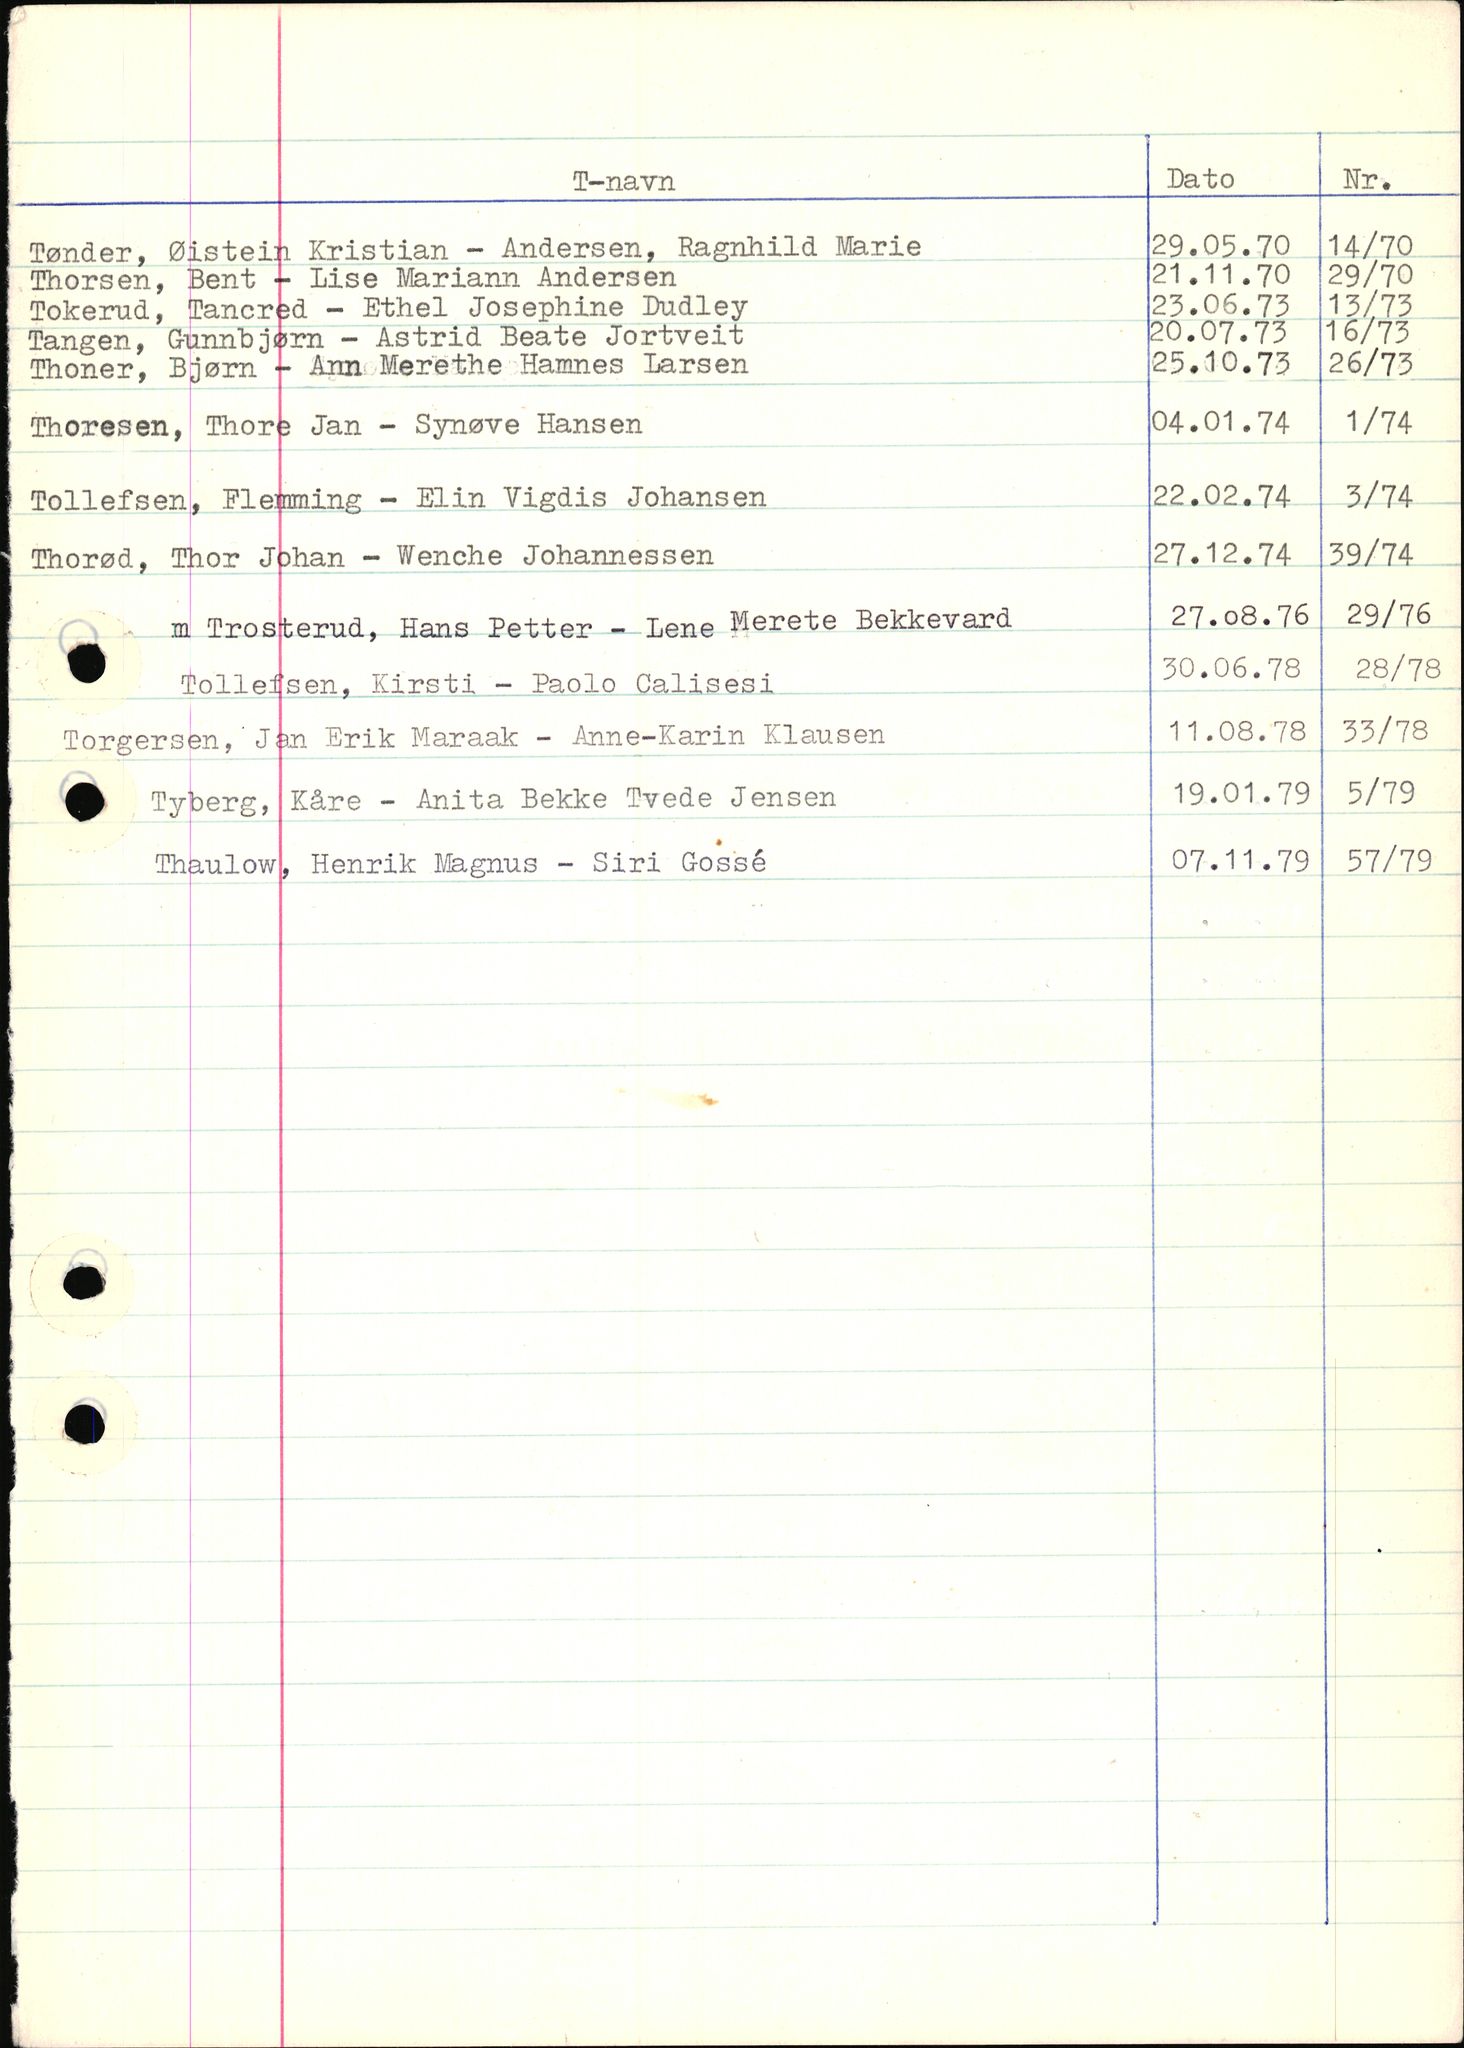 T-navn Dato Nr.
Tønder, Øistein Kristian - Andersen, Ragnhild Marie 29.05.70 14/70
Thorsen, Bent - Lise Mariann Andersen 21.11.70 29/70
Tokerud, Tancred - Ethel Josephine Dudley 23.06.73 13/73
Tangen, Gunnbjørn - Astrid Beate Jortveit 20.07.73 16/73
Thoner, Bjørn - Ann Merethe Hamnes Larsen 25.10.73 26/73
Thoresen, Thore Jan - Synøve Hansen 04.01.74 1/74
Tollefsen, Flemming - Elin Vigdis Johansen 22.02.74 3/74
Thorød, Thor Johan - Wenche Johannessen 27.12.74 39/74
m Trosterud, Hans Petter - Lene Merete Bekkevard 27.o8.76 29/76
Tollefsen, Kirsti - Paolo Calisesi 30.06.78 28/78
Torgersen, Jan Erik Maraak - Anne-Karin Klausen 11.08.78 33/78
Tyberg, Kåre - Anita Bekke Tvede Jensen 19.01.79 5/79
Thaulow, Henrik Magnus - Siri Gossé 07.11.79 57/79